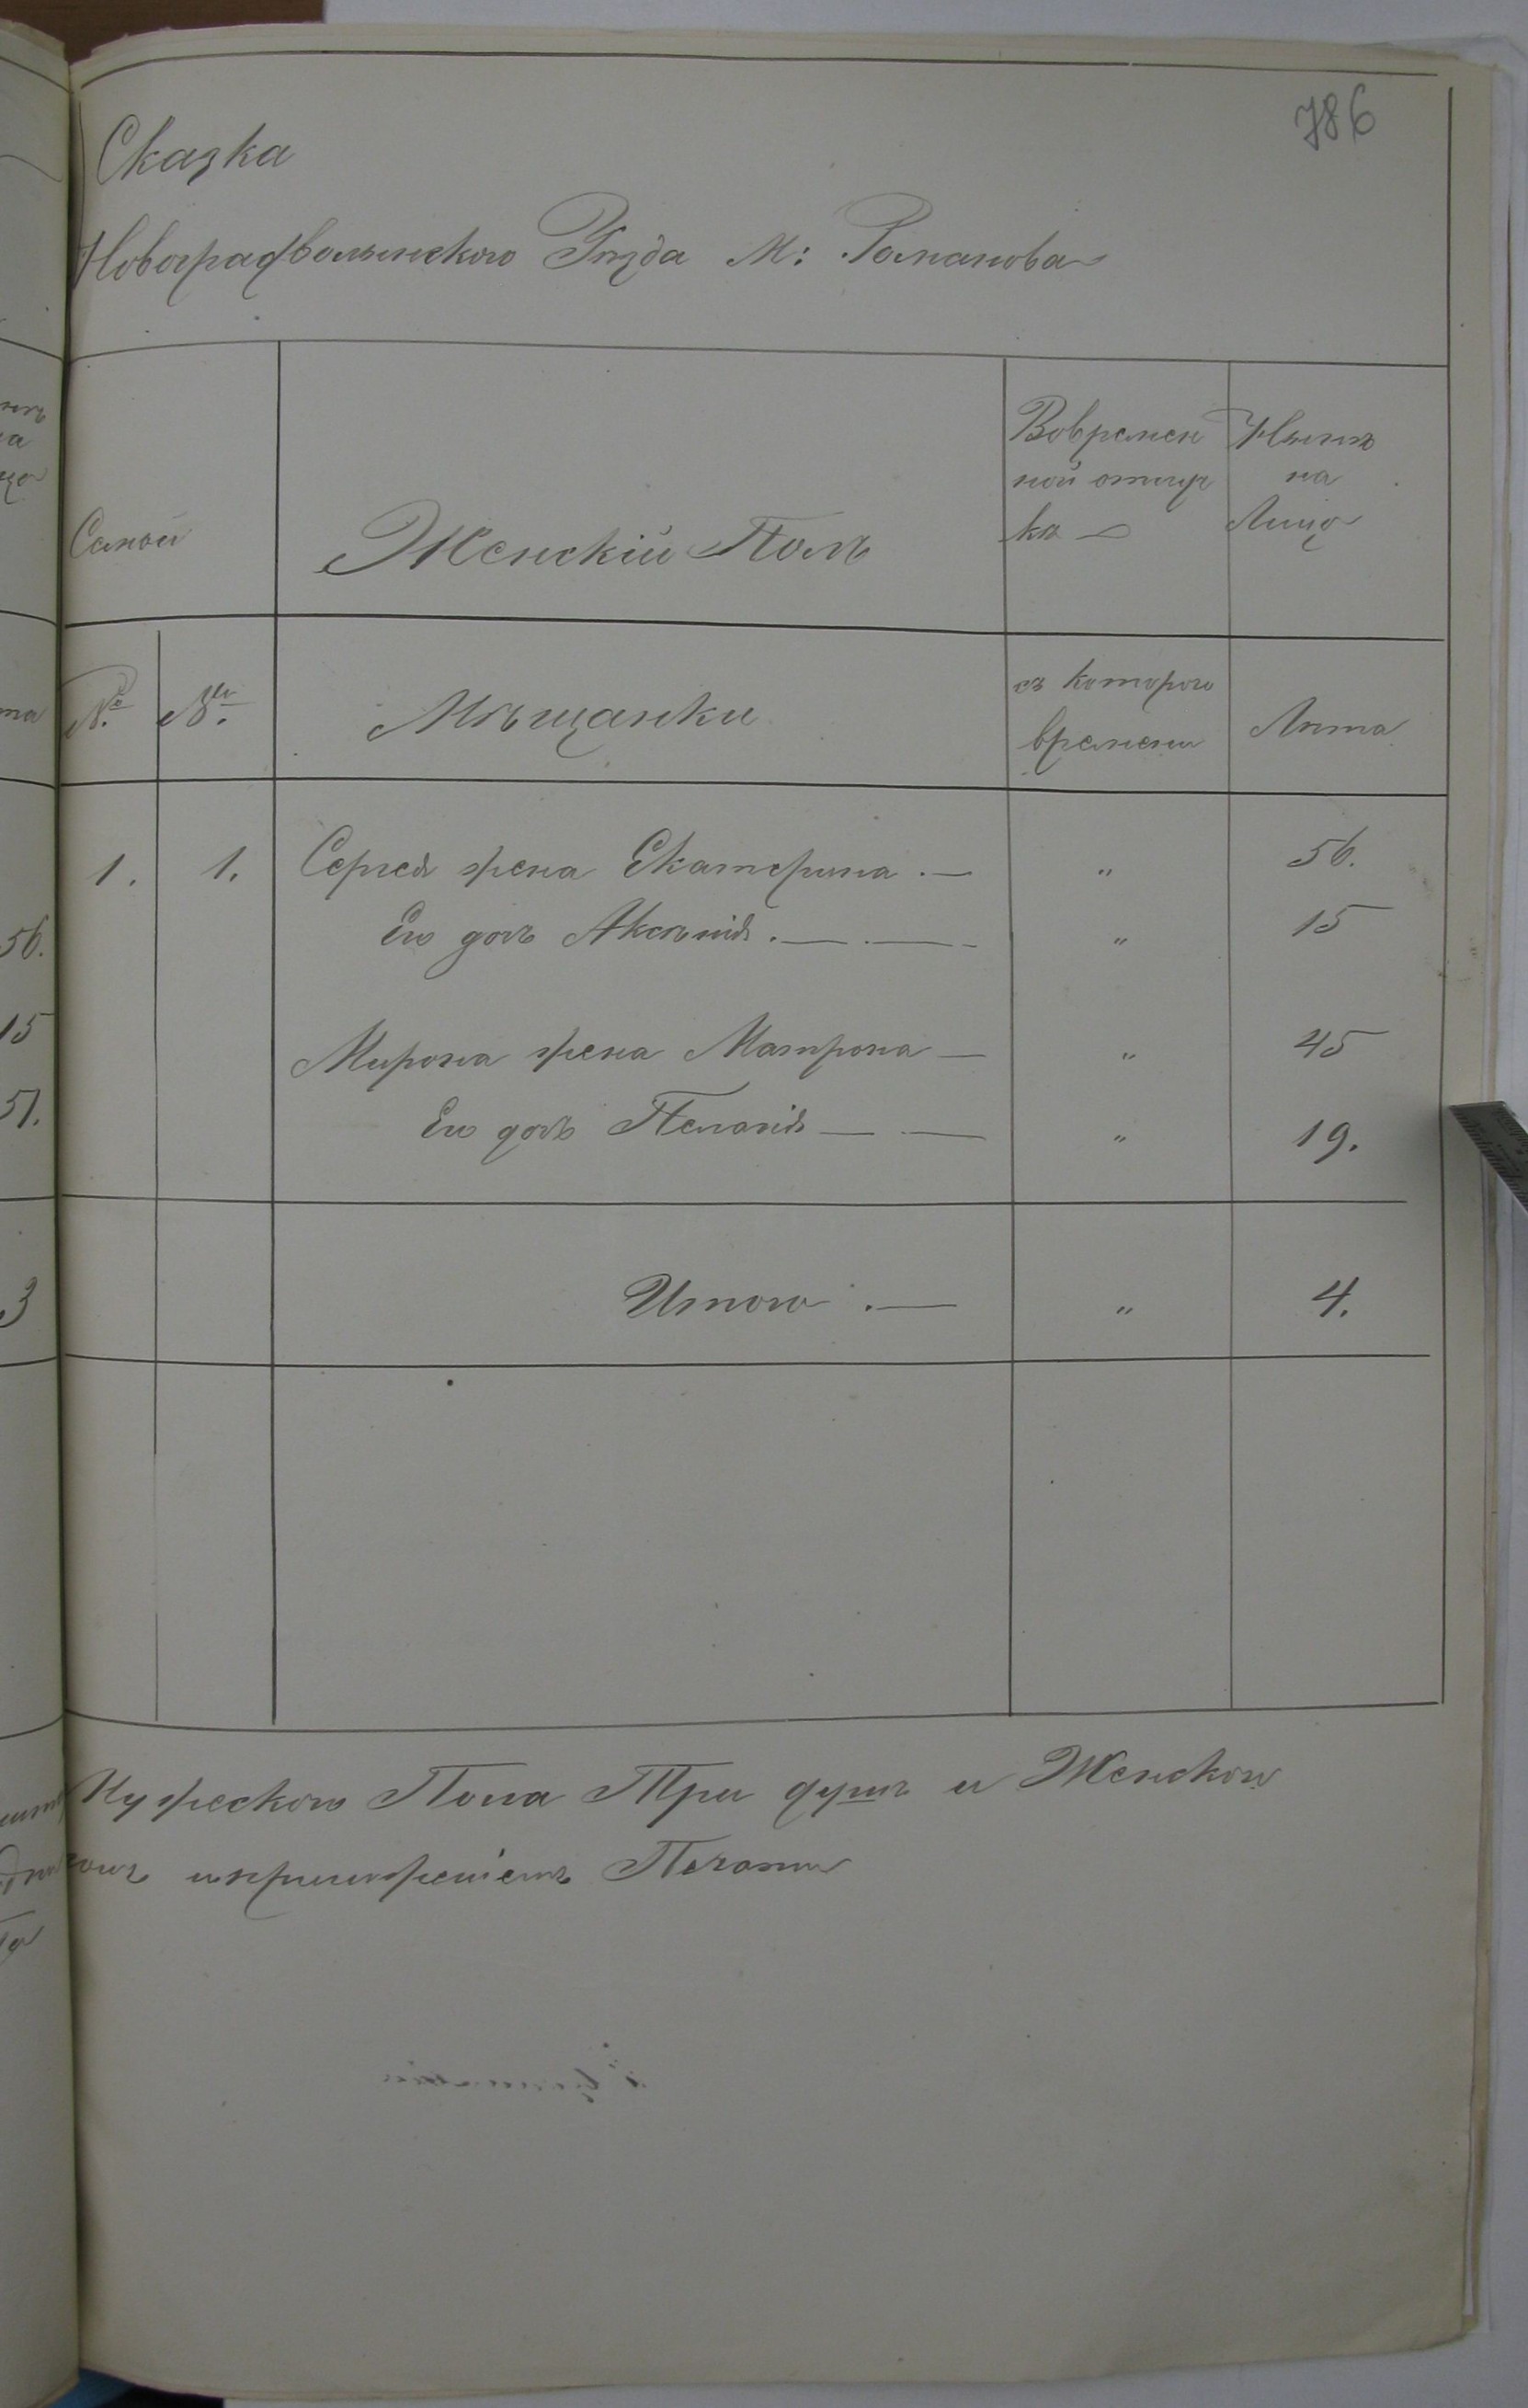 786
Сказка
Новоградволынского Уѣзда М: Романова
Самой
Женскій Полъ
Вовремен
ной отлуч
кѣ
Нынѣ
на
Лицо
№ №
Мѣщанки
съ котораго
времени
Лѣта
1. 1. Сергея жена Екатерина . — " 56.
Его дочь Аксѣнія . — . — " 15
Мирона жена Матрона — " 45
Его дочь Пелагія — — " 19.
Итого . — " 4.
Мужеского Пола Три душъ и Женского
иприложеніемъ Печати
56.
15
51.
3